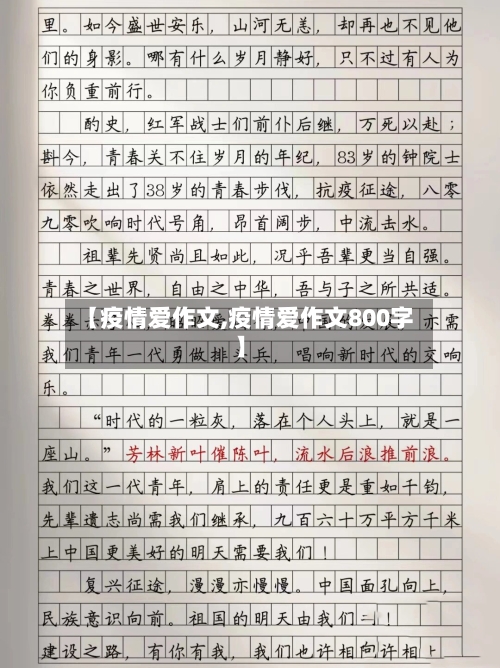 里。如今盛世安乐，山河无恙，却再也不见他
们的身影。哪有什么岁月静好，只不过有人为
你负重前行。
酌史，红军战士们前仆后继，万死以赴；
斟今，青春关不住岁月的年纪，83岁的钟院士
依然走出了38岁的青春步伐，抗疫征途，八零
九零吹响时代号角，昂首阔步，中流击水。
祖辈先贤尚且如此，况乎吾辈更当自强。
青春之世界，自由之中华，吾与子之所共适。
拳拳
亦需
【疫情爱作文,疫情爱作文800字
】
我们青年一代勇做排头兵，唱响新时代的交响
乐。
“时代的一粒灰，落在个人头上，就是一
座山。”芳林新叶催陈叶，流水后浪推前浪。
我们这一代青年，肩上的责任更是重如千钧，
先辈遗志尚需我们继承，九百六十万平方千米
上中国更美好的明天需要我们！
复兴征途，漫漫亦慢慢。中国面孔向上，
民族意识向前。祖国的明天由我们 ！
建设之路，有你有我，我们也许相向许相上